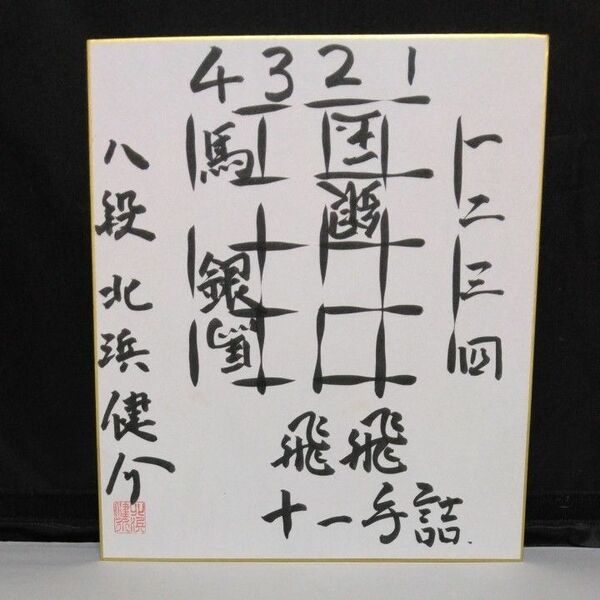 4 3 2 1
一
二
三
四
馬 玉
銀
銀
飛飛
十一手詰
八段 北浜健介